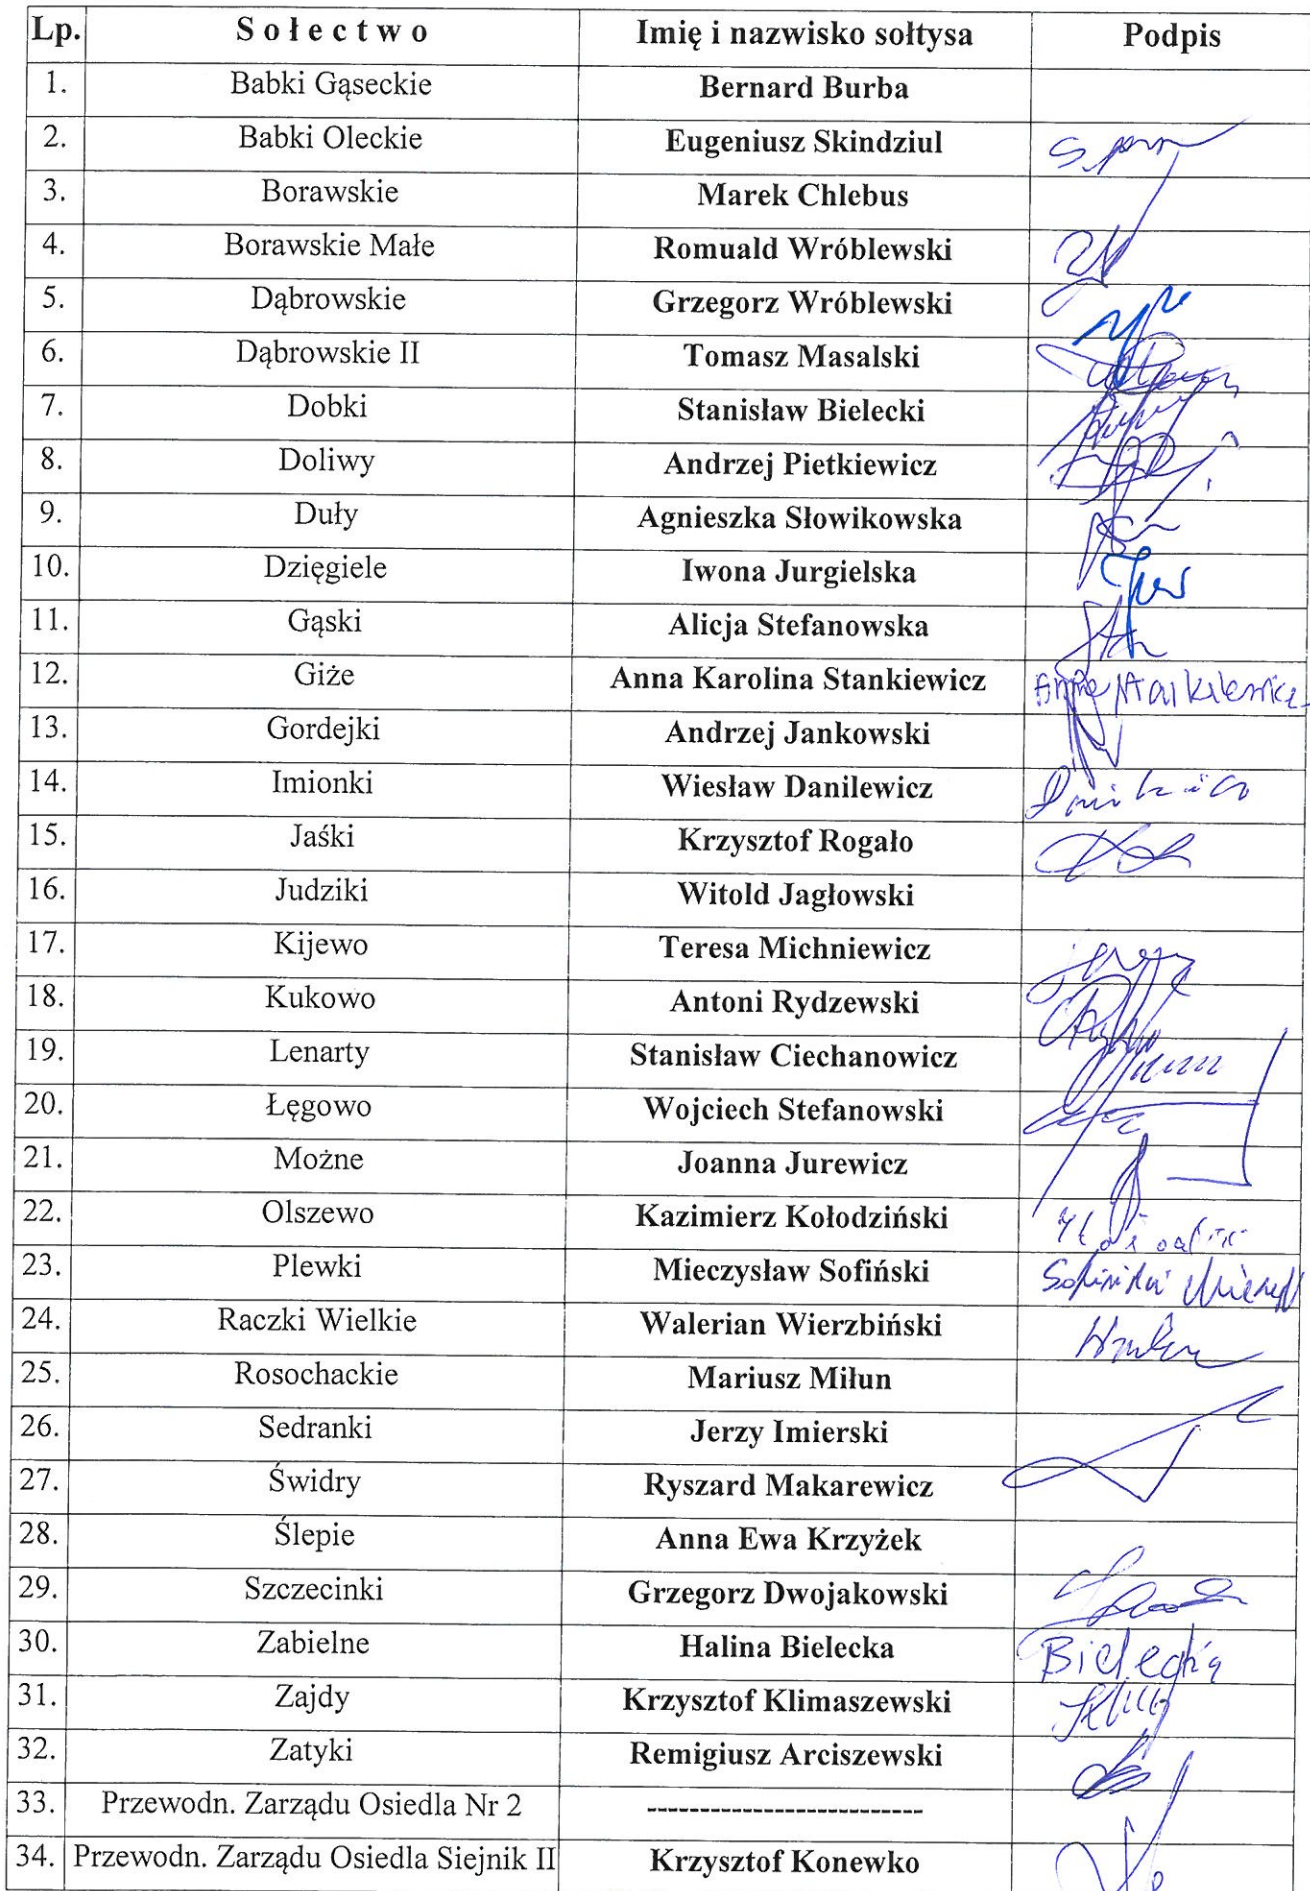 Lp. Sołectwo Imię i nazwisko sołtysa Podpis
1. Babki Gąseckie Bernard Burba
2. Babki Oleckie Eugeniusz Skindziul
3. Borawskie Marek Chlebus
4. Borawskie Małe Romuald Wróblewski
5. Dąbrowskie Grzegorz Wróblewski
6. Dąbrowskie II Tomasz Masalski
7. Dobki Stanisław Bielecki
8. Doliwy Andrzej Pietkiewicz
9. Duły Agnieszka Słowikowska
10. Dzięgiele Iwona Jurgielska
11. Gąski Alicja Stefanowska
12. Giże Anna Karolina Stankiewicz
13. Gordejki Andrzej Jankowski
14. Imionki Wiesław Danilewicz
15. Jaśki Krzysztof Rogało
16. Judziki Witold Jagłowski
17. Kijewo Teresa Michniewicz
18. Kukowo Antoni Rydzewski
19. Lenarty Stanisław Ciechanowicz
20. Łęgowo Wojciech Stefanowski
21. Możne Joanna Jurewicz
22. Olszewo Kazimierz Kołodziński
23. Plewki Mieczysław Sofiński
24. Raczki Wielkie Walerian Wierzbiński
25. Rosochackie Mariusz Miłun
26. Sedranki Jerzy Imierski
27. Świdry Ryszard Makarewicz
28. Ślepie Anna Ewa Krzyżek
29. Szczecinki Grzegorz Dwojakowski
30. Zabielne Halina Bielecka Bielecka
31. Zajdy Krzysztof Klimaszewski
32. Zatyki Remigiusz Arciszewski
33. Przewodn. Zarządu Osiedla Nr 2 --------------------------
34. Przewodn. Zarządu Osiedla Siejnik II Krzysztof Konewko